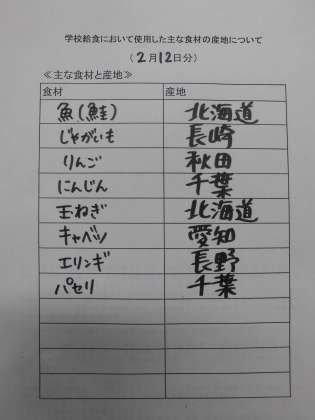 学校給食において使用した主な食材の産地について
(2月12日分)
≪主な食材と産地≫
食材 産地
魚(鮭) 北海道
じゃがいも 長崎
りんご 秋田
にんじん 千葉
玉ねぎ 北海道
キャベツ 愛知
エリンギ 長野
パセリ 千葉